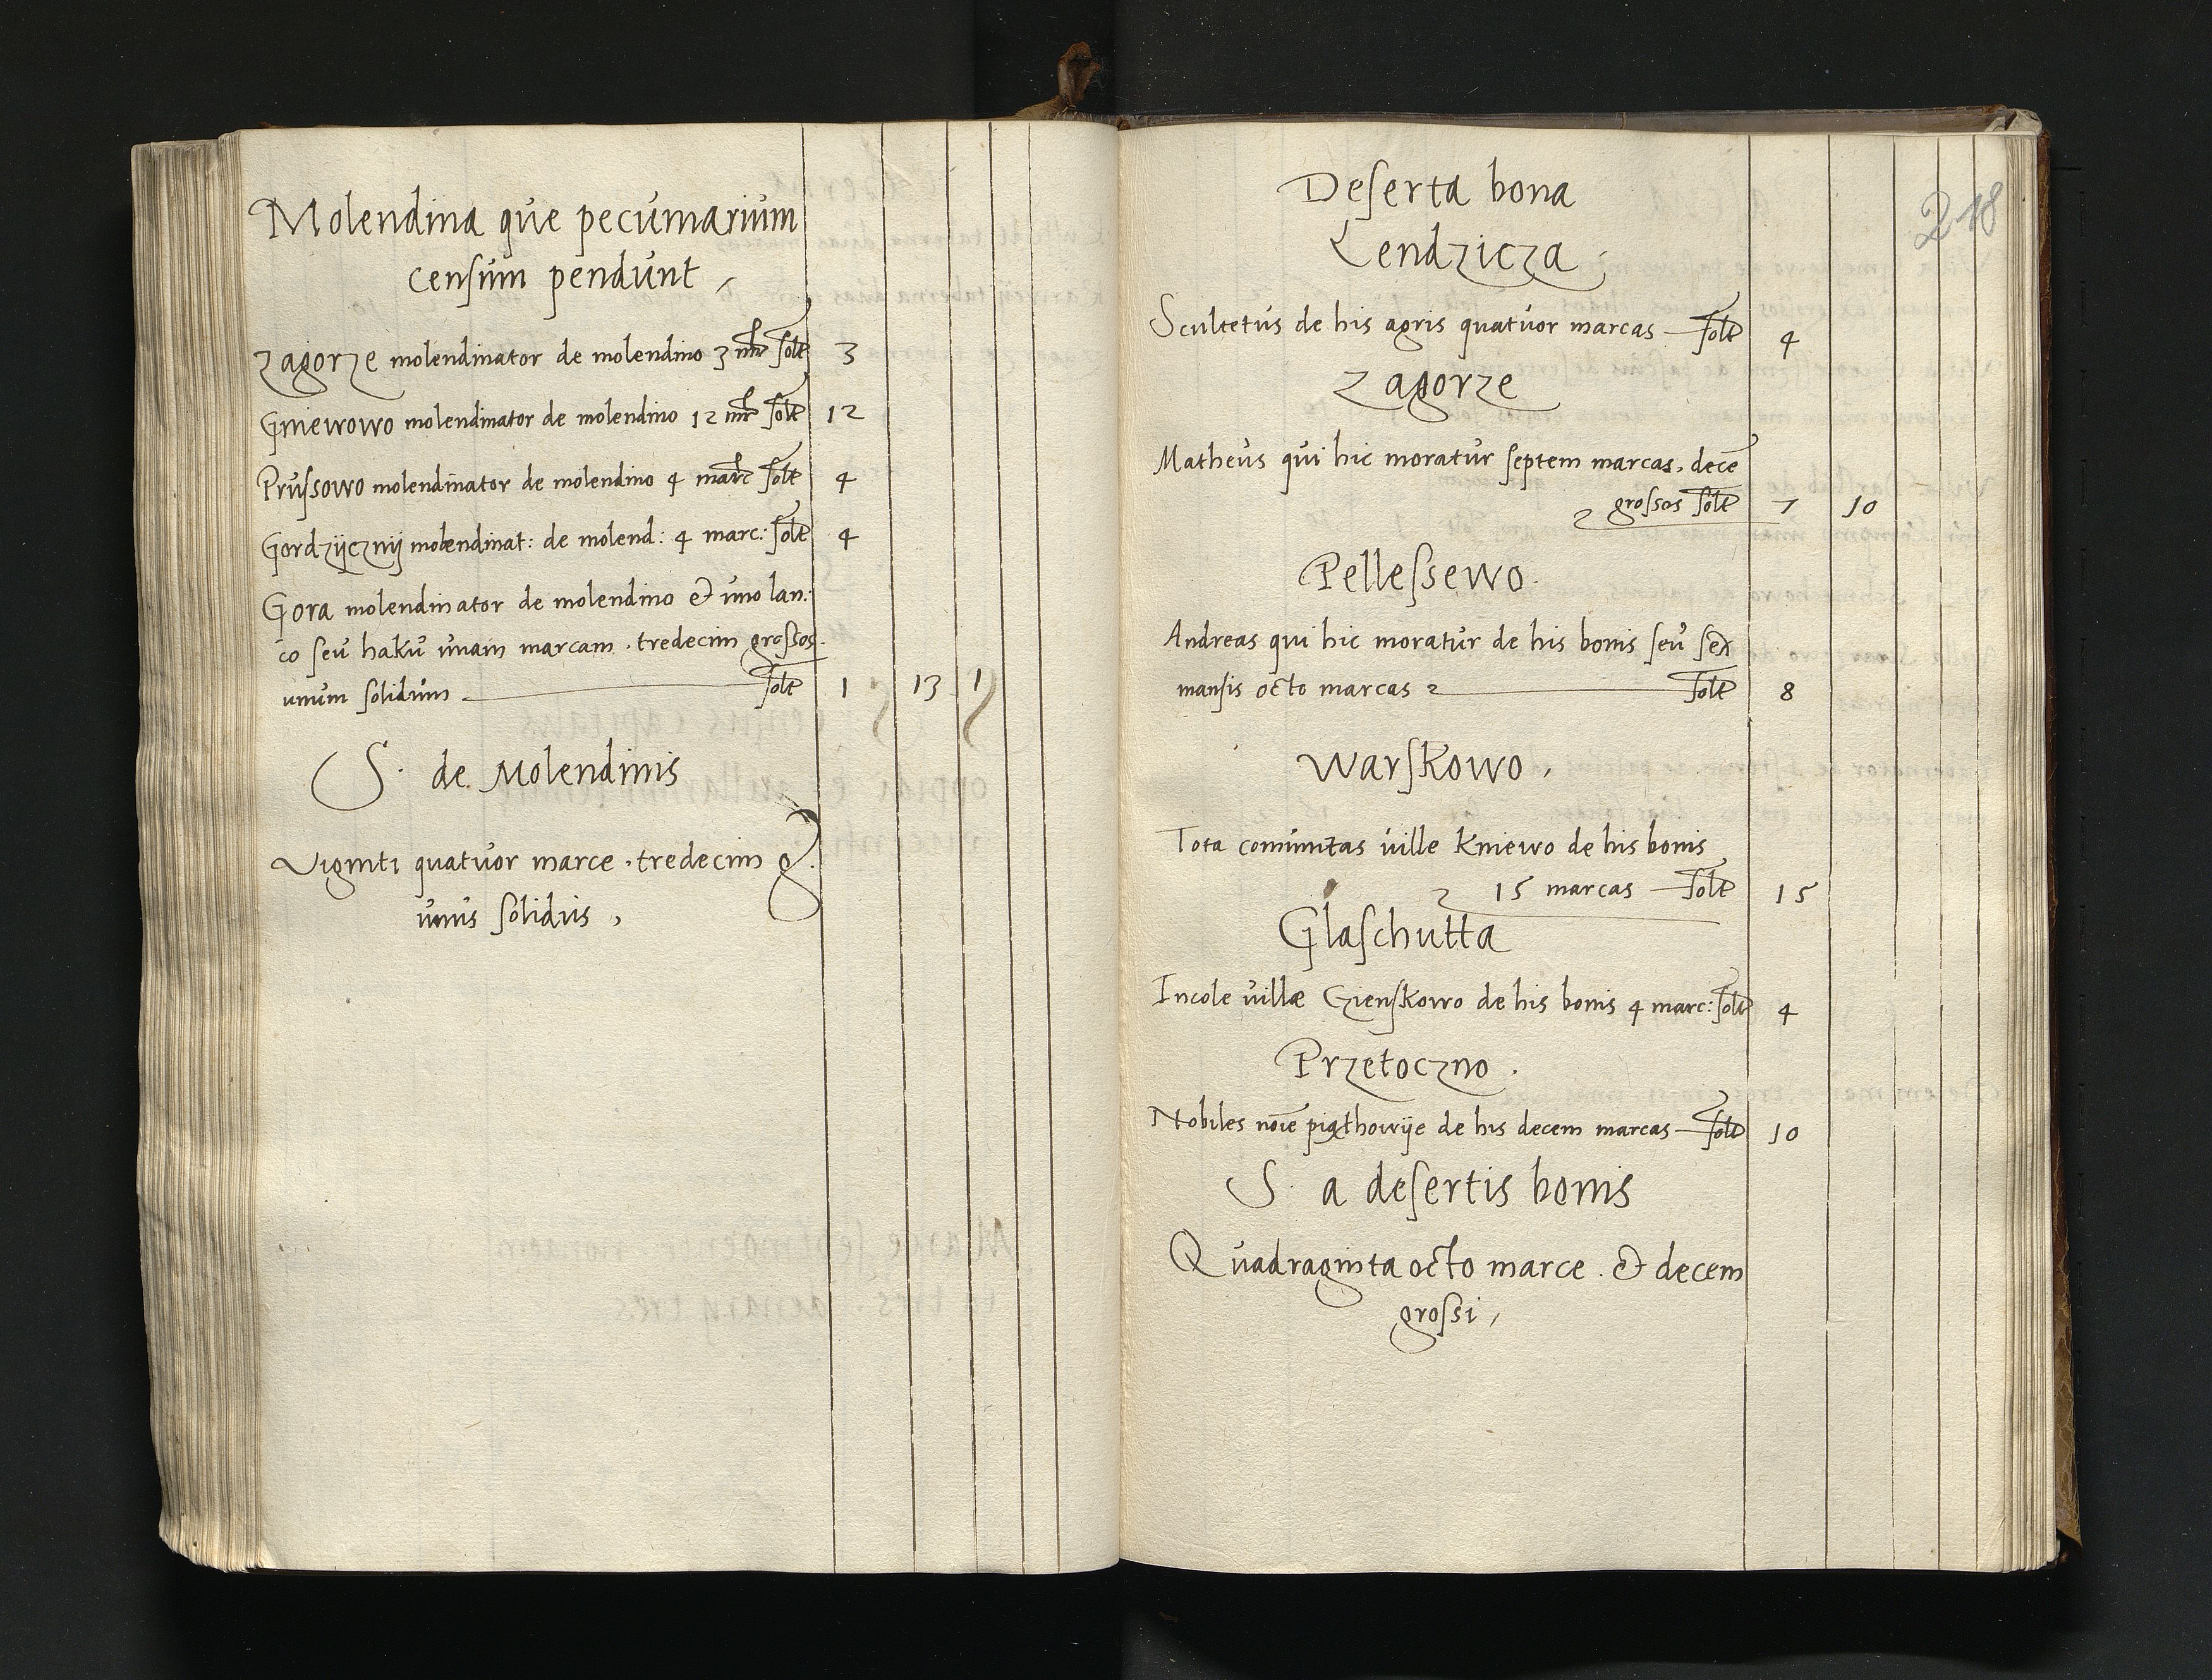 Molendina que pecuniarium
censum pendunt,
Zagorze molendinator de molendino 3 mr solt 3
Gniewowo molendinator de molendino 12 mr solt 12
Prussowo molendinator de molendino 4 marc solt 4
Gordzijcznij molendinat: de molend: 4 marc: solt 4
Gora molendinator de molendino & uno lan:
co seu haku unam marcam . tredecim grossos.
unum solidum solt 1 13 1
S. de Molendinis
Viginti quatuor marce . tredecim g.
unus solidus,
218
Deserta bona
Lendzicza
Scultetus de his agris quatuor marcas solt 4
Zagorze
Matheus qui hic moratur septem marcas. decē
grossos solt 7 10
Pellessewo.
Andreas qui hic moratur de his bonis seu sex
mansis octo marcas solt 8
Warskowo,
Tota comunitas ville Kniewo de his bonis
15 marcas solt 15
Glaschutta
Incole villæ Gienskowo de his bonis 4 marc: solt 4
Przetoczno.
Nobiles noīe de his decem marcas solt 10
S. a desertis bonis
Quadraginta octo marce . & decem
grossi,